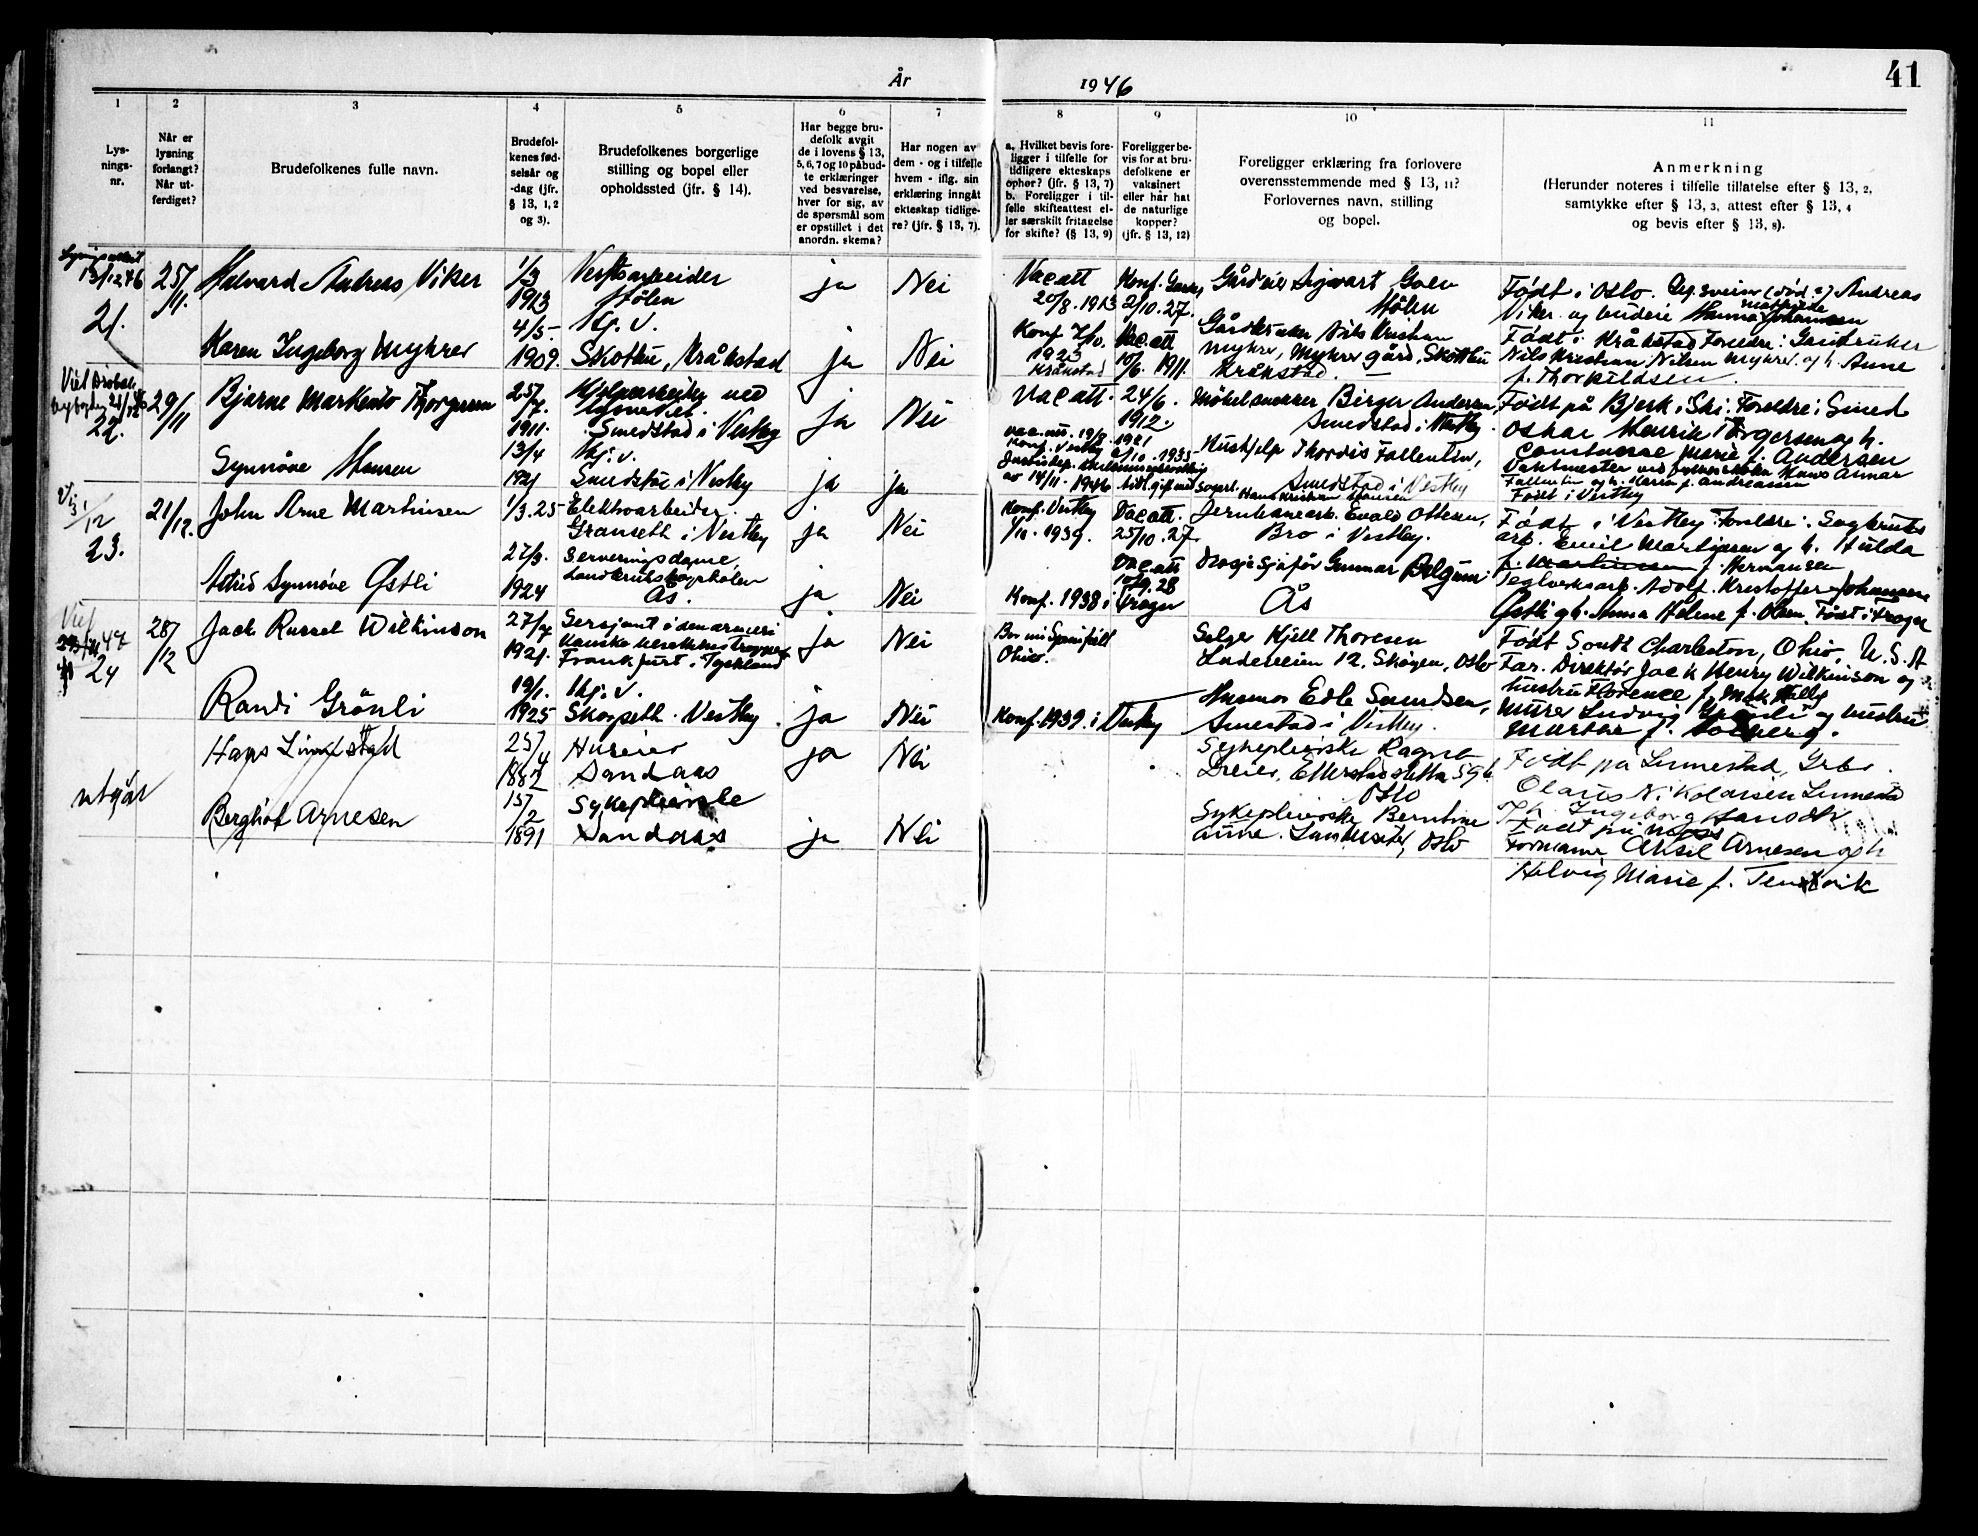 41
År 1946
1
2
3
4
5
6
7
8
9
10
11
Lys-
nings-
nr.
Når er
lysning
forlangt?
Når ut-
ferdiget?
Brudefolkenes fulle navn.
Brudefol-
kenes fød-
selsår og
-dag (jfr.
§ 13, 1, 2
og 3).
Brudefolkenes borgerlige
stilling og bopel eller
opholdssted (jfr. § 14).
Har begge bru-
defolk avgit
de i lovens § 13,
5, 6, 7 og 10 påbud-
te erklæringer
ved besvarelse,
hver for sig, av
de spørsmål som
er opstillet i det
anordn. skema?
Har nogen av
dem - og i tilfelle
hvem - iflg. sin
erklæring inngått
ekteskap tidlige-
re? (jfr. § 13, 7).
a. Hvilket bevis fore-
ligger i tilfelle for
tidligere ekteskaps
ophør? (jfr. § 13, 7)
b. Foreligger i til-
felle skifteattest el-
ler særskilt fritagelse
for skifte? (§ 13, 9)
Foreligger be-
vis for at bru-
defolkene er
vaksinert
eller har hat
de naturlige
kopper?
(jfr. § 13, 12)
Foreligger erklæring fra forlovere
overensstemmende med § 13, 11?
Forlovernes navn, stilling
og bopel.
Anmerkning
(Herunder noteres i tilfelle tillatelse efter § 13, 2,
samtykke efter § 13, 3, attest efter § 13, 4
og bevis efter § 13, 8).
13/12 46
21.
25/11.
Halvard Andreas Viker
1/3
1913
Verftsarbeider
Hølen
ja
Nei
Vac att
20/8. 1913
2/10. 27.
Gårdeier Sigvart Goen
Hølen
Født i Oslo. Andreas
Viker og
Karen Ingeborg Myhrer
4/5-
1909.
Hj. v.
Skotbu, Kråkstad
ja
Nei
Konf 7/10.
1923
Kråkstad
Vac. att
10/6. 1911.
Nils Kristian
Myhrer, Myhrer gård, Skotbu
Kråkstad.
Født i Kråkstad Foreldre: Gårdbruker
Nils Kristian Nilsen Myhrer og h. Anne
f. Thorkildsen.
22.
29/11
Bjarne Markento Thorgersen
25/7.
1911.
Smedstad i Vestby
ja
Nei
Vac att.
24/6.
1912.
Møbelsnekker Birger Andersen,
Smedstad i Vestby
Født på Bjerk i Ski. Foreldre: Smed
Oskar Henrik Torgersen og h.
Constanse Marie f. Andersen
Synnøve Hansen
13/4
1921
Hj. v.
Smedstad i Vestby
ja
ja
Konf. Vestby
av 14/11. 1946
Hushjelp Thordis Fallentin,
Smedstad i Vestby
Hans Kristian Hansen
Fallentin og h. Maria f. Andreassen
Født i Vestby
23.
21/12.
John Arne Martinsen
1/3. 25
Elektroarbeider.
Granseth i Vestby
ja
Nei
Konf. Vestby
1/10. 1939.
Vac att.
25/10. 27.
Jernbanearb. Evald Ottesen,
Bro i Vestby.
Født i Vestby. Foreldre: Sagbruks
arb. Emil Martinsen og h. Hulda
f. Martinsen f. Hermansen
Astrid Synnøve Østli
27/3.
1924
Serveringsdame,
Landbrukshøgskolen
Ås.
ja
Nei
Konf. 1938 i Frogn
Vac att
10/9. 28
Drosjesjåfør Gunnar
Ås
Teglverksarb. Adolf Kristoffer Johansen
Østli og h. Anna Helene f. Olsen, Født i Frogn
24
28/12
Jack Russel Wilkinson
27/7
1921.
Sersjant i den ameri
kanske okkupasjonstropper
Frankfurt i Tyskland
ja
Nei
Ohio.
Selger Kjell Thoresen
12, Skøyen, Oslo
Født South Charleston, Ohio, U.S.A
Far. Direktør Jack Henry Wilkinson og
hustru Florence f.
Randi Grönli
19/1.
1925
Hj. v.
Skogseth. Vestby.
ja
Nei
Konf. 1939. i Vestby
Husmor Edle Samdsen,
Smestad i Vestby.
Murer Ludvig Grønli og hustru
Marthe f. Solberg.
utgår
Hans Linnestad
25/4
1882
Huseier
Sandaas
ja
Nei
Sykepleierske Ragna
Dreier, Etterstadsletta 59 b
Oslo
Født på Linnestad,
Olaus Nikolaisen Linnestad
Ingeborg
Bergliot Arnesen
15/2
1891
Sykepleierske
Sandaas
ja
Nei
Sykepleierske Berntine
Anne. Landseter, Oslo
Født på Moss
Formann Aksel Arnesen og h
Helvig Marie f. Tenvik